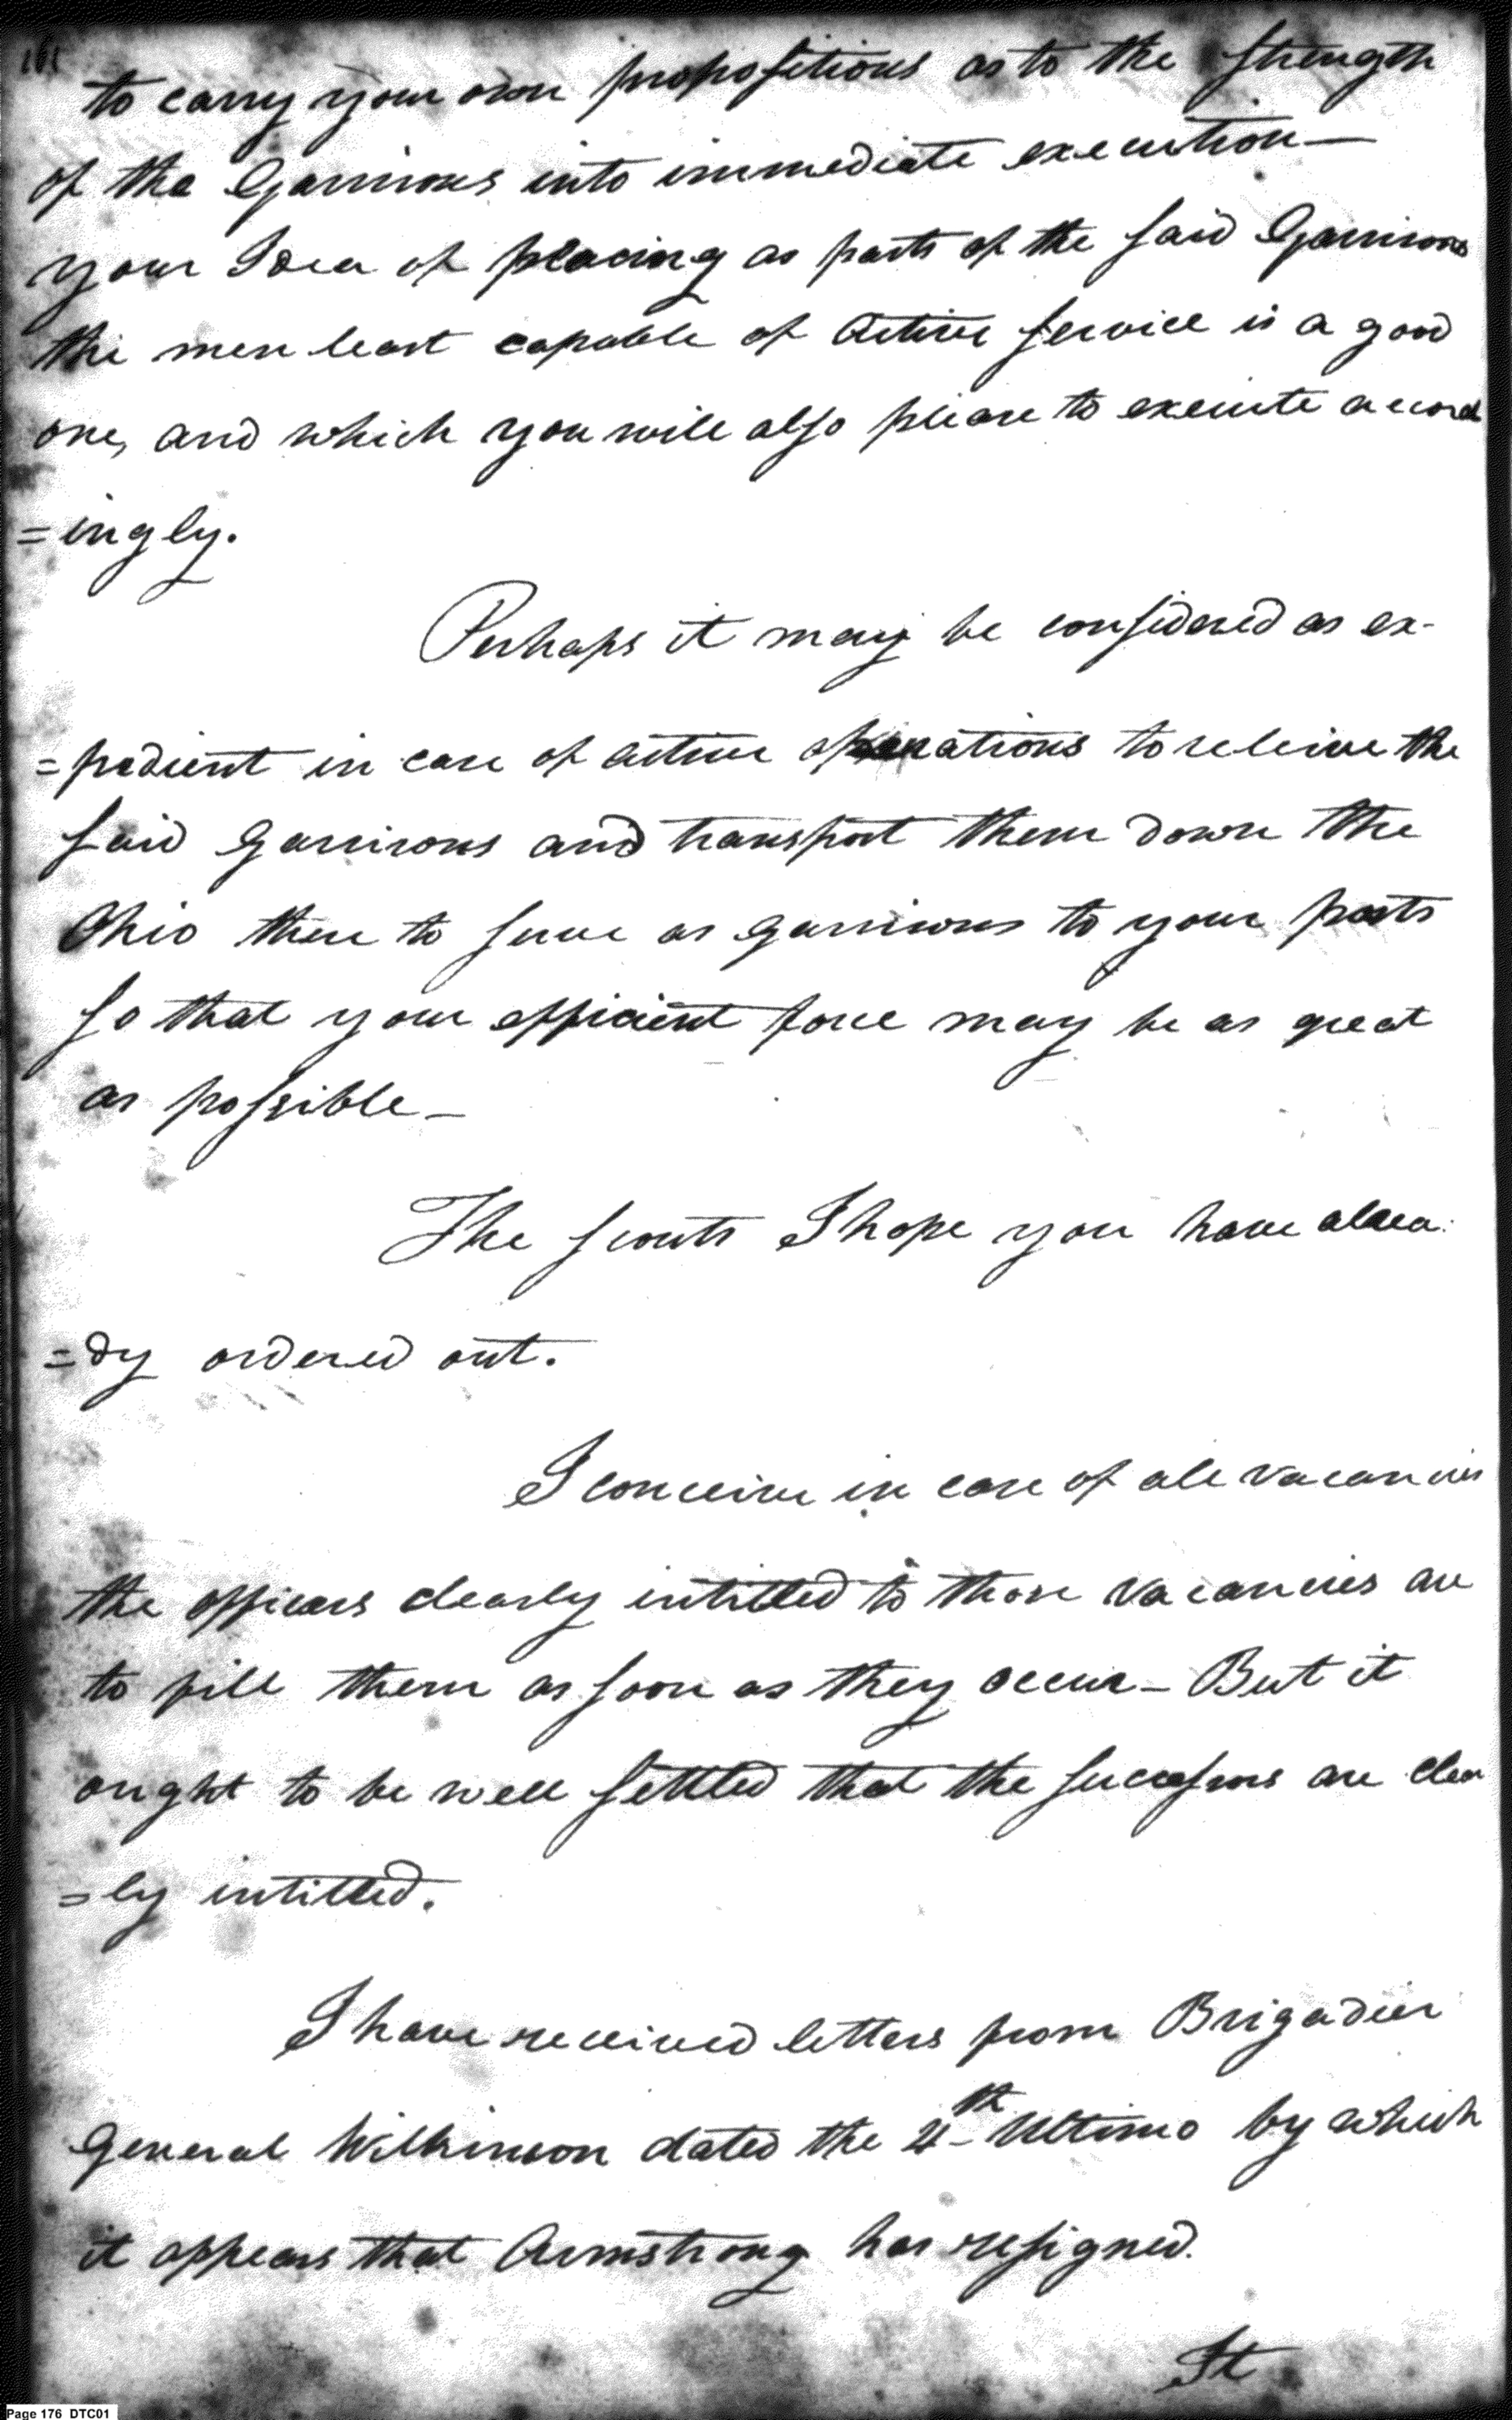 161
to carry your own propositions as to the strength
of the Garrisons into immediate execution—
your Idea of placing as parts of the said Garrisons
the men least capable of active service is a good
one, and which you will also please to execute accord
=ingly.
Perhaps it may be considered as ex-
=pedient in case of active operations to releive the
said Garrisons and transport them down the
Ohio there to serve as garrisons to your posts
so that your efficient force may be as great
as possible—
The scouts I hope you have alrea:
=dy ordered out.
I conceive in case of all vacancies
the officers clearly intitled to those vacancies are
to fill them as soon as they occur— But it
ought to be well settled that the successors are clear
=ly intitled.
I have received letters from Brigadier
General Wilkinson dated the 4th Ultimo by which
it appears that Armstrong has resigned.
It
Page 176 DTC01